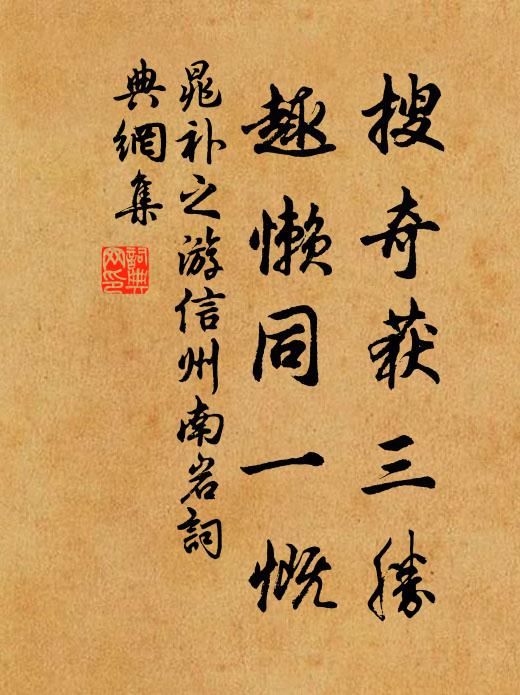 搜奇获三勝
趣懒同一慨
晁补之游信州南岩詞
典網集
詞典网印